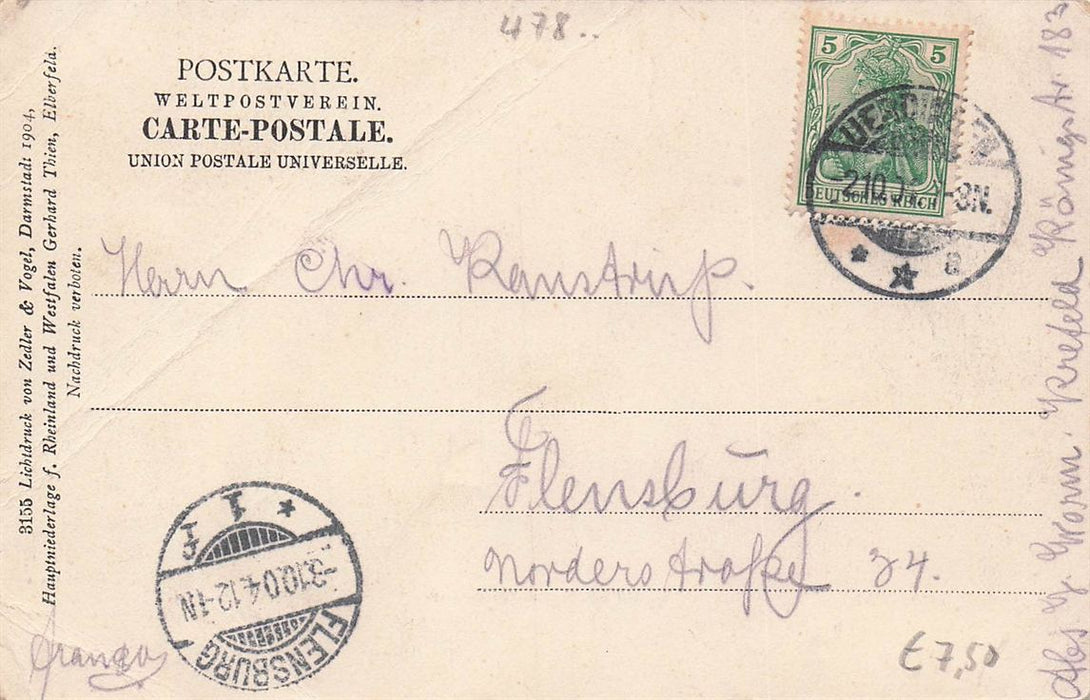 478..
POSTKARTE.
WELTPOSTVEREIN.
CARTE-POSTALE.
UNION POSTALE UNIVERSELLE.
5 5
DEUTSCHES REICH
2.10. -8N.
a
3155 Lichtdruck von Zedler & Vogel, Darmstadt 1904,
Hauptniederlage f. Rheinland und Westfalen Gerhard Thien, Elberfeld.
Nachdruck verboten.
Herrn Chr.
Flensburg.
Norderstraße 34.
* 1 f
-3.10.04.12-1N
FLENSBURG
€ 7,50
Krefeld Königstr. 183